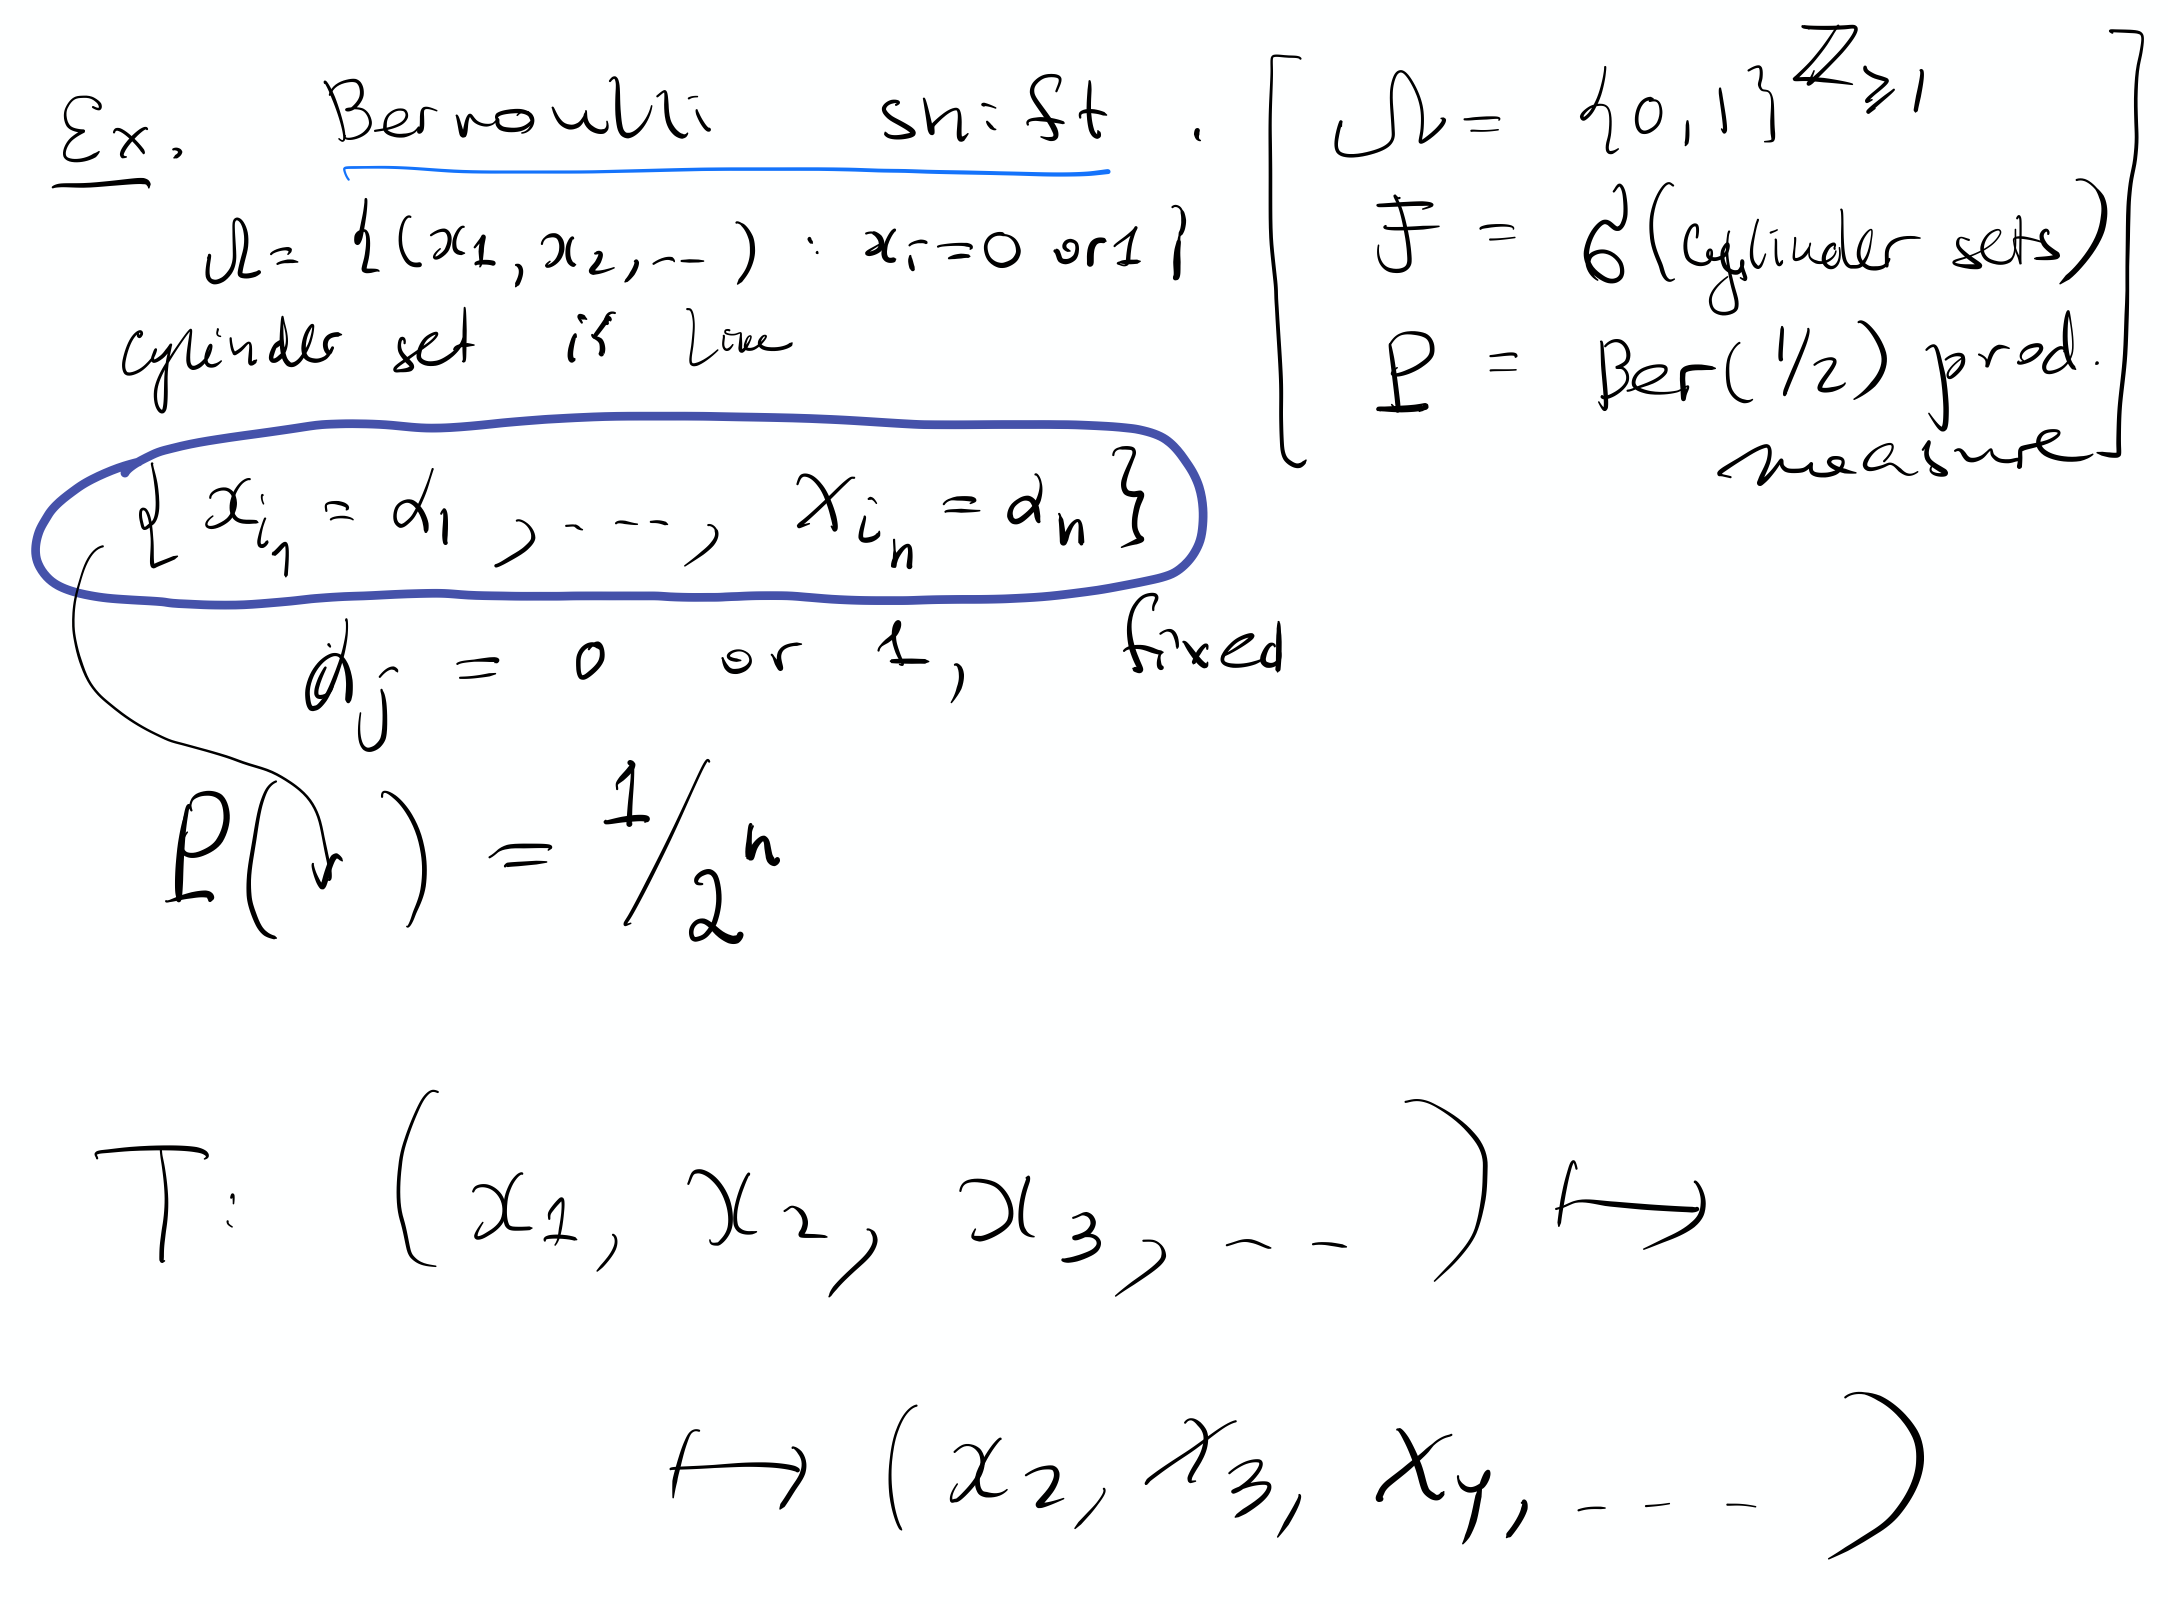 Ex. Bernoulli shift.
Ω = {(x1, x2, ...) : xi = 0 or 1}
cylinder set is like
{ x_{i_1} = α_1, ...., x_{i_n} = α_n }
α_j = 0 or 1, fixed
P( ) = 1/2^n
[ Ω = {0,1}^{ℤ≥1}
F = σ(cylinder sets)
P = Ber(1/2) prod.
measure ]
T: (x_1, x_2, x_3, ...) ↦
↦ (x_2, x_3, x_4, ....)